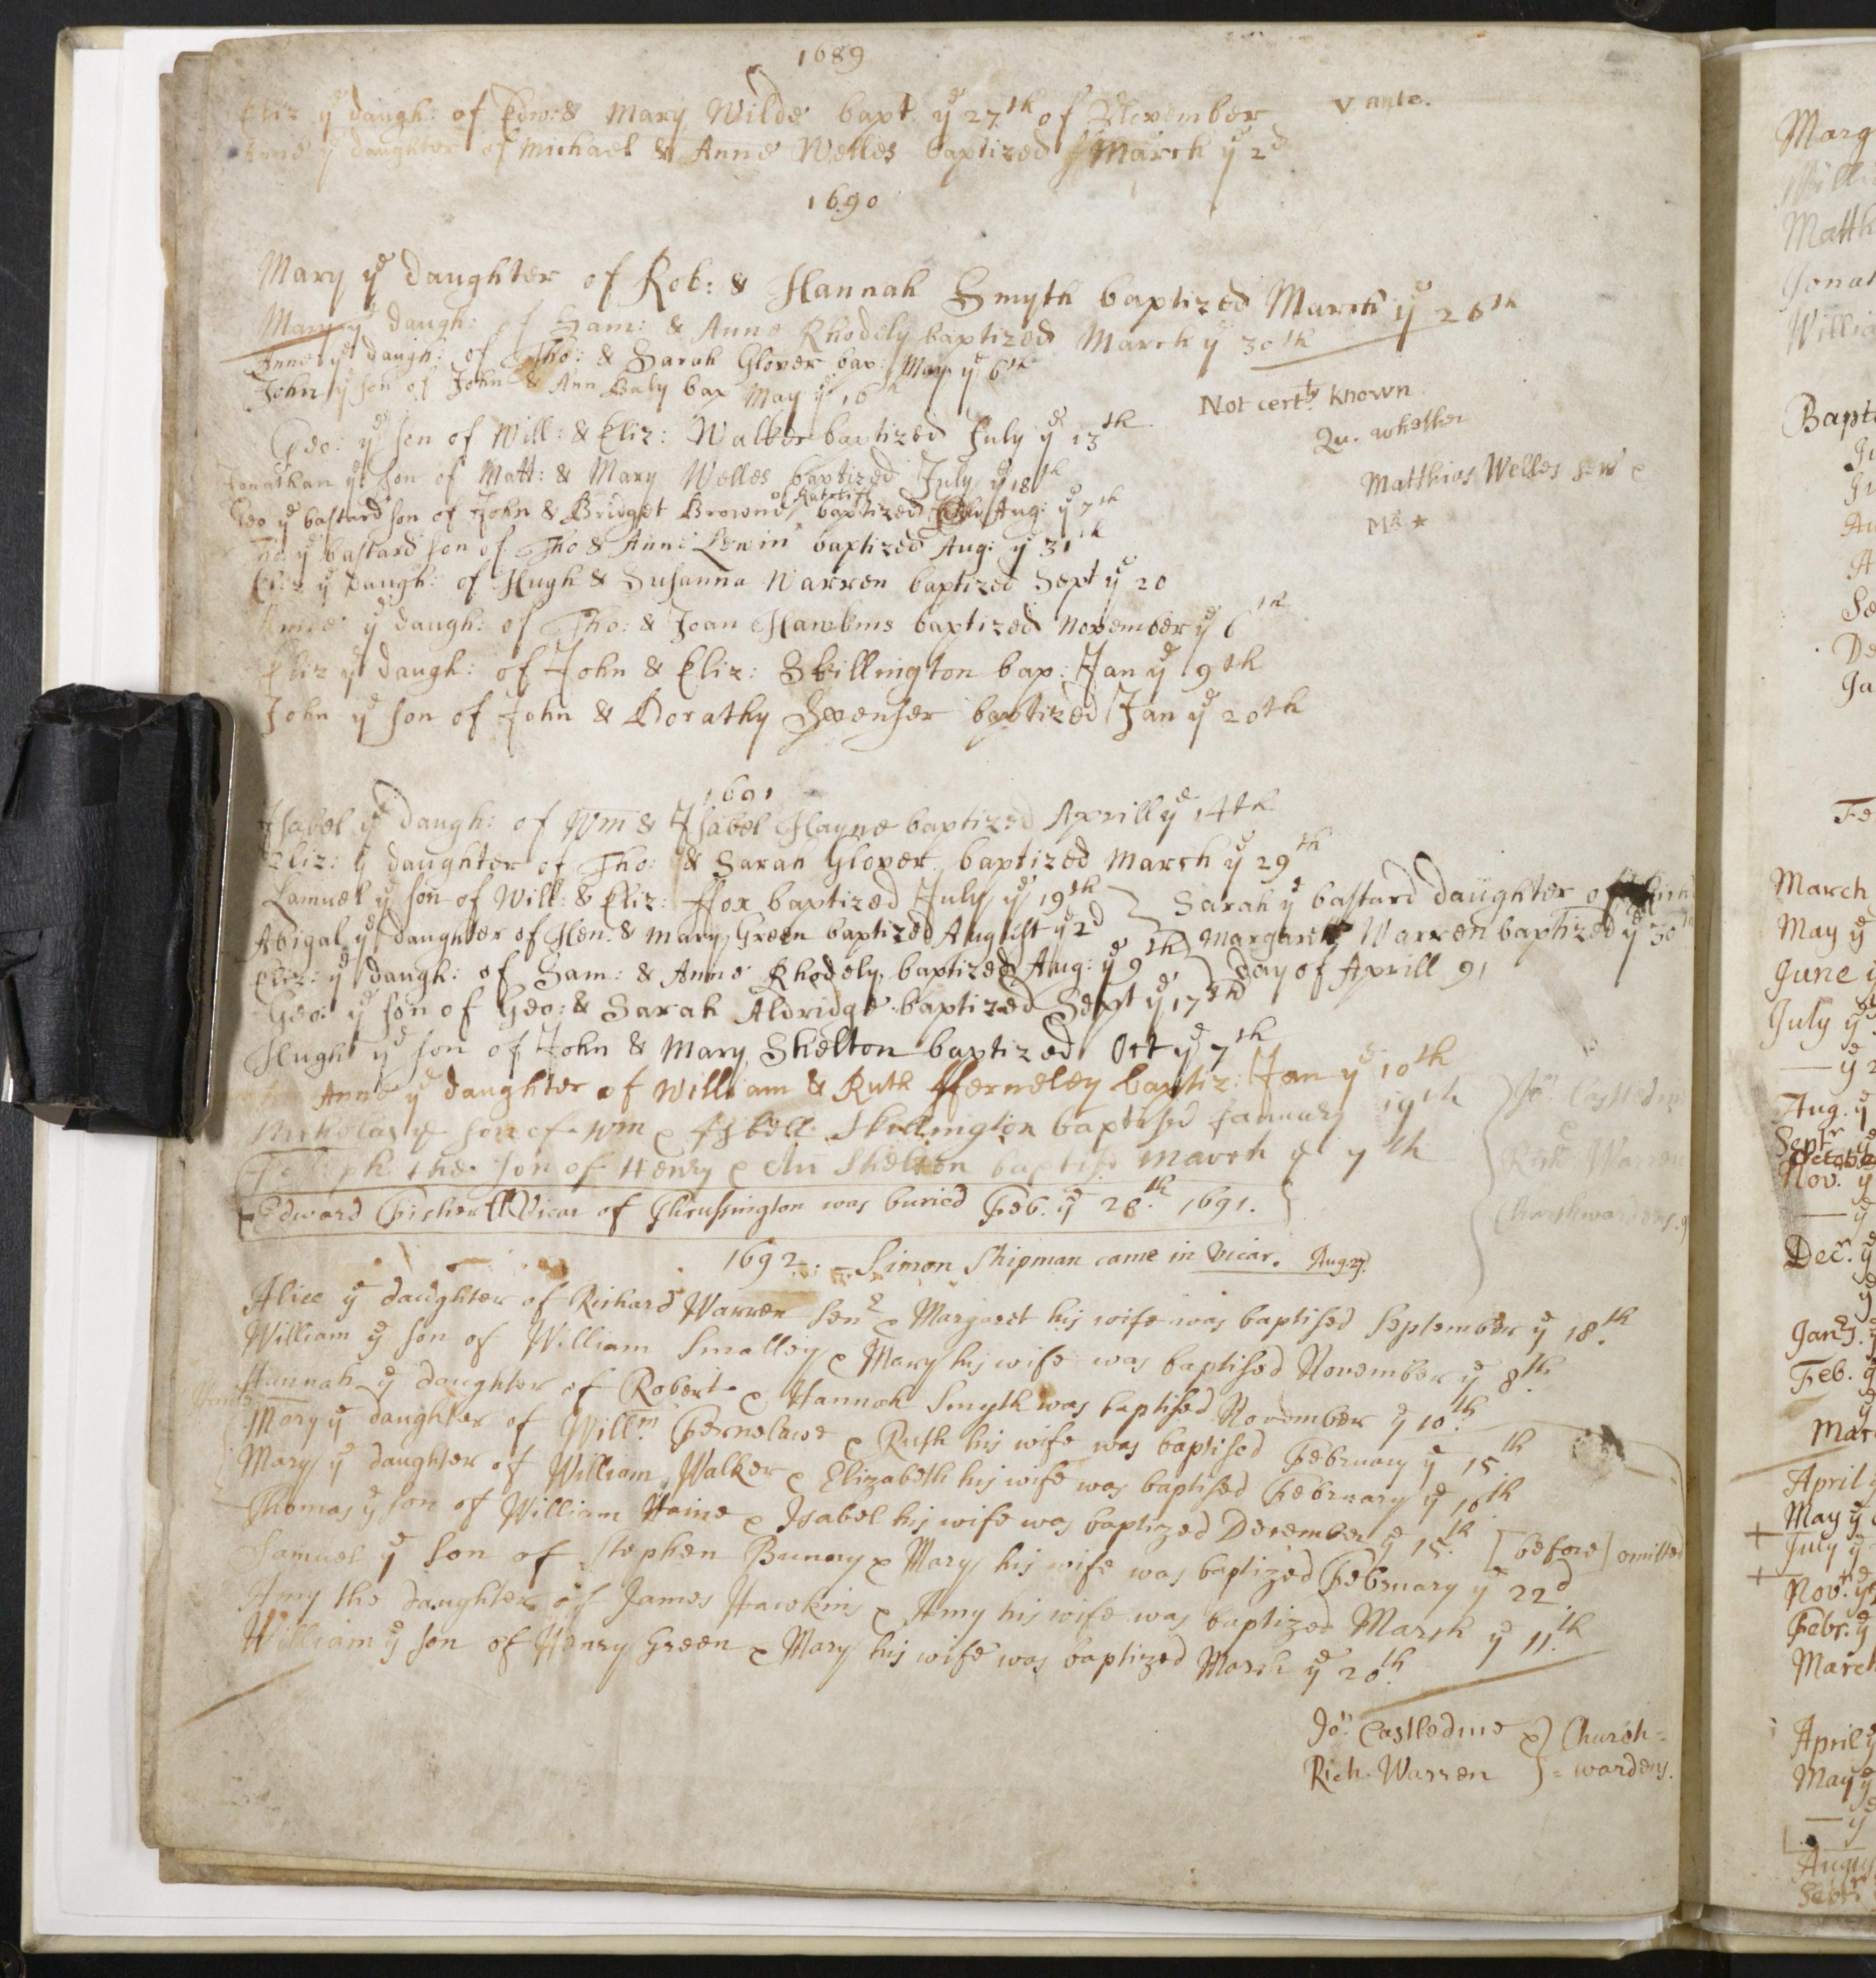 1689
Eliz ye daugh: of Edw: & Mary Wilde bapt. ye 27th of November
V ante.
Anne ye daughter of Michael & Anne Welles baptized March ye 2d
1690
Mary ye daughter of Rob: & Hannah Smyth baptized March ye 26th
Mary ye daugh: of Sam: & Anne Rhodely baptized March ye 30th
Anne ye daugh: of Tho: & Sarah Glover bap: May ye 6th
John ye son of John & Ann Baly bap May ye 16th
Not certly known
Geo: ye son of Will: & Eliz: Walker baptized July ye 13th
Qu. whether
Jonathan ye son of Matt: & Mary Welles baptized July ye 18th
Matthias Welles
Geo ye bastard son of John & Bridget Browne of Ratcliff baptized Aug: ye 7th
ye bastard son of Tho & Anne Lewin baptized Aug: ye 31th
Eliz ye daugh: of Hugh & Susanna Warren baptized Sept ye 20
Annie ye daugh: of Tho: & Joan Hawkins baptized November ye 6th
Eliz ye daugh: of John & Eliz: Skillington bap: Jan ye 9th
John ye son of John & Dorathy Spenser baptized Jan ye 20th
1691
Isabel ye daugh: of Wm & Isabel Hayne baptized Aprill ye 14th
Eliz: ye daughter of Tho: & Sarah Glover baptized March ye 29th
Samuel ye son of Will: & Eliz: ffox baptized July ye 19th
Sarah ye bastard daughter of
Abigal ye daughter of Hen: & Mary Green baptized August ye 2d
Margarett Warren baptized ye 30th
Eliz: ye daugh: of Sam: & Anne Rhodely baptized Aug: ye 9th
day of Aprill 91
Geo: ye son of Geo: & Sarah Aldridge baptized Sept ye 17th
Hugh ye son of John & Mary Shelton baptized Oct ye 7th
Anne ye daughter of William & Ruth fferneley baptiz: Jan ye 10th
Nicholas ye son of Wm & Isbell Skillington baptised January 19th
Jon Castledine
Joseph the son of Henry & An Shelton baptised March ye 7th
Rich Warren
Edward Fisher Vicar of Thrussington was buried Feb. ye 28th. 1691.
Churchwardens.
1692. - Simon Shipman came in Vicar. Aug. 27.
Alice ye daughter of Richard Warren Senr & Margaret his wife was baptised September ye 18th.
William ye son of William Smalley & Mary his wife was baptised November ye 8th.
Hannah ye daughter of Robert & Hannah Smyth was baptised November ye 10th.
Mary ye daughter of Willm. Fernelawe & Ruth his wife was baptised February ye 15th
Mary ye daughter of William Walker & Elizabeth his wife was baptised February ye 16th
Thomas ye son of William Haine & Isabel his wife was baptized December ye 15th. [before] omitted
Samuel ye Son of Stephen Bunny & Mary his wife was baptized February ye 22d.
Amy the daughter of James Hawkins & Amy his wife was baptized March ye 11th.
William ye son of Henry Green & Mary his wife was baptized March ye 20th.
Jon. Castledine & } Church=
Rich. Warren } = wardens.
Marg
Matth
Jonat
Willia
Bapt
De
Ja
Fe
March
May ye
June y
July ye
Aug. ye
Sept
Nov. ye
Decr. ye
Jan
Feb.
Mar
April
May ye
July ye
Novr. ye
Febr. ye
March
April ye
May ye
August